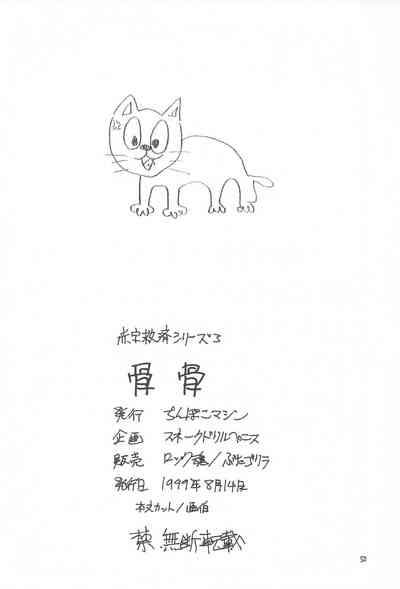 赤字救済シリーズ3
骨骨
発行 ちんぽこマシン
企画 スネークドリルペニス
販売 ロック魂/ぶたゴリラ
発行日 1999年8月14日
本文カット/画伯
禁無断転載
52